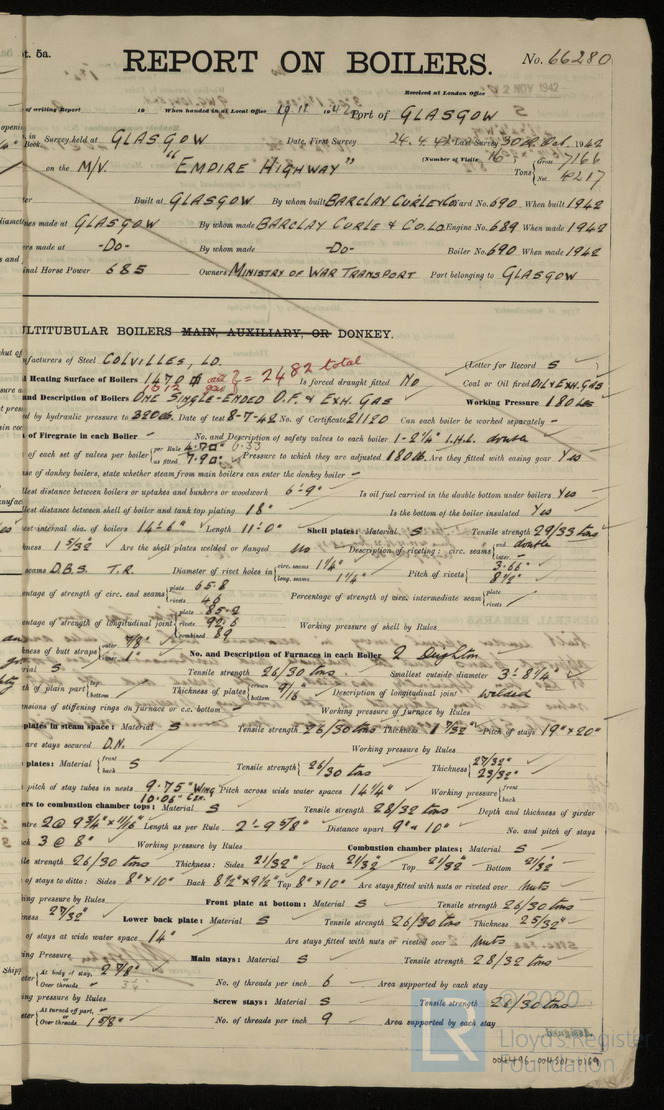 pt. 5a.
REPORT ON BOILERS.
No. 66280
Received at London Office 2 NOV 1942
of writing Report 19 When handed in at Local Office 19 11 1942 Port of GLASGOW
in Book. Survey held at GLASGOW Date, First Survey 24. 4. 42 Last Survey 30th Oct. 1942
on the M/V. "EMPIRE HIGHWAY" (Number of Visits 16) Tons { Gross 7166
Net 4217
Built at GLASGOW By whom built BARCLAY CURLE & Co Yard No. 690 When built 1942
made at GLASGOW By whom made BARCLAY CURLE & CO. LD. Engine No. 689 When made 1942
made at -Do- By whom made -Do- Boiler No. 690 When made 1942
Horse Power 685 Owners MINISTRY OF WAR TRANSPORT Port belonging to GLASGOW
MULTITUBULAR BOILERS MAIN, AUXILIARY, OR DONKEY.
Manufacturers of Steel COLVILLES, LD. (Letter for Record S
Total Heating Surface of Boilers 1470 1012 oil gas } = 2482 total Is forced draught fitted No Coal or Oil fired OIL & EXH. GAS
and Description of Boilers ONE SINGLE-ENDED O.F. & EXH. GAS Working Pressure 180 LBS
Tested by hydraulic pressure to 320 lb. Date of test 8-7-42 No. of Certificate 21120 Can each boiler be worked separately -
of Firegrate in each Boiler - No. and Description of safety valves to each boiler 1 - 2 1/4" I.H.L. double
of each set of valves per boiler { per Rule 4.70" 6.33
as fitted 7.90" Pressure to which they are adjusted 180 lb. Are they fitted with easing gear Yes
case of donkey boilers, state whether steam from main boilers can enter the donkey boiler -
Smallest distance between boilers or uptakes and bunkers or woodwork 6'-9" Is oil fuel carried in the double bottom under boilers Yes
Smallest distance between shell of boiler and tank top plating 18" Is the bottom of the boiler insulated Yes
Largest internal dia. of boilers 14'-6" Length 11'-0" Shell plates: Material S Tensile strength 29/33 tons
Thickness 1 5/32" Are the shell plates welded or flanged No Description of riveting: circ. seams { end double
inter. -
seams D.B.S. T.R. Diameter of rivet holes in { circ. seams 1 1/4"
long. seams 1 1/4" Pitch of rivets { 3.66"
8 1/2"
Percentage of strength of circ. end seams { plate 65.8
rivets 46 Percentage of strength of circ. intermediate seam { plate
rivets
Percentage of strength of longitudinal joint { plate 85.2
rivets 92.6
combined 89 Working pressure of shell by Rules
Thickness of butt straps { outer 7/8"
inner 1" No. and Description of Furnaces in each Boiler 2 Deighton
Material S Tensile strength 26/30 tons Smallest outside diameter 3'-8 1/4"
of plain part { top
bottom Thickness of plates { crown
bottom 9/16" Description of longitudinal joint welded
Dimensions of stiffening rings on furnace or c.c. bottom - Working pressure of furnace by Rules
plates in steam space: Material S Tensile strength 26/30 tons Thickness 1 7/32" Pitch of stays 19" x 20"
are stays secured D.N. Working pressure by Rules
plates: Material { front
back S Tensile strength { 26/30 tons Thickness { 27/32"
23/32"
pitch of stay tubes in nests 9.75" WING
10.06" CEN. Pitch across wide water spaces 14 1/4" Working pressure { front
back
Girders to combustion chamber tops: Material S Tensile strength 28/32 tons Depth and thickness of girder
centre 2 @ 9 3/4" x 11/16" Length as per Rule 2'-9 5/8" Distance apart 9" & 10" No. and pitch of stays
3 @ 8" Working pressure by Rules Combustion chamber plates: Material S
Tensile strength 26/30 tons Thickness: Sides 21/32" Back 21/32" Top 21/32" Bottom 21/32"
of stays to ditto: Sides 8" x 10" Back 8 1/2" x 9 1/2" Top 8" x 10" Are stays fitted with nuts or riveted over Nuts
Working pressure by Rules Front plate at bottom: Material S Tensile strength 26/30 tons
Thickness 27/32" Lower back plate: Material S Tensile strength 26/30 tons Thickness 25/32"
of stays at wide water space 14" Are stays fitted with nuts or riveted over Nuts
Working Pressure Main stays: Material S Tensile strength 28/32 tons
Diameter { At body of stay, 2 7/8"
or
Over threads 3 1/4" No. of threads per inch 6 Area supported by each stay
Working pressure by Rules Screw stays: Material S Tensile strength 26/30 tons
Diameter { At turned off part,
or
Over threads 1 5/8" No. of threads per inch 9 Area supported by each stay
© 2020
LR
Lloyd's Register
Foundation
004496-004501-0169